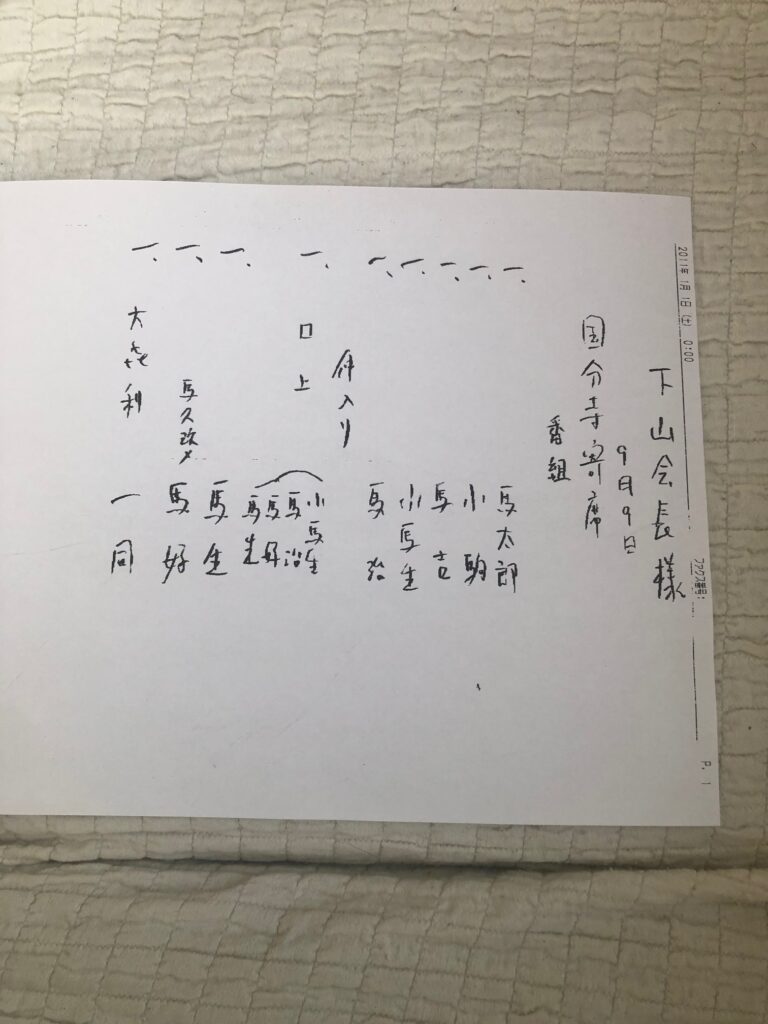 2011年 1月 1日(土) 0:00 ファクス番号: P. 1
下山会長様
9月9日
国分寺寄席
番組
一、馬太郎
一、小駒
一、馬吉
一、小馬生
一、馬治
仲入り
一、口上 小馬生
馬治
馬好
馬生
一、馬生
一、馬久改メ 馬好
一、大㐂利 一同